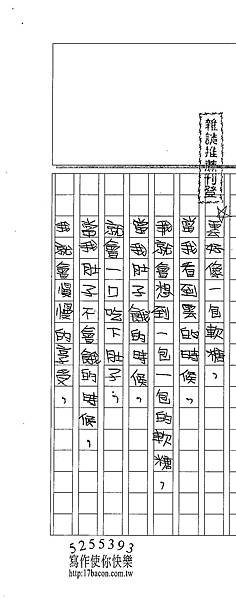 雜誌推薦刊登
雲好像一包軟糖，
當我看到雲的時候，
我就會想到一包一包的軟糖，
當我肚子餓的時候，
就會一口吃下肚子，
當我肚子不會餓的時候，
我就會慢慢的享受，
5255393
寫作使你快樂
http:17bacon.com.tw